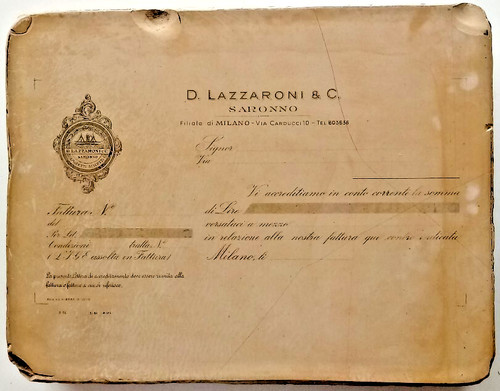 D. LAZZARONI & C.
SARONNO
Filiale di MILANO - VIA CARDUCCI 10 - TEL. 803838
D. LAZZARONI & C.
SARONNO
Signor
Via
Vi accreditiamo in conto corrente la somma
di Lire
versataci a mezzo
in relazione alla nostra fattura qui contro indicata
Milano, li
Fattura N.º
del
Per Lit.
Condizioni tratta N.º
(I.G.E. assolta in Fattura)
La presente lettera di accreditamento deve essere riunita alla
fattura o fatture a cui si riferisce.